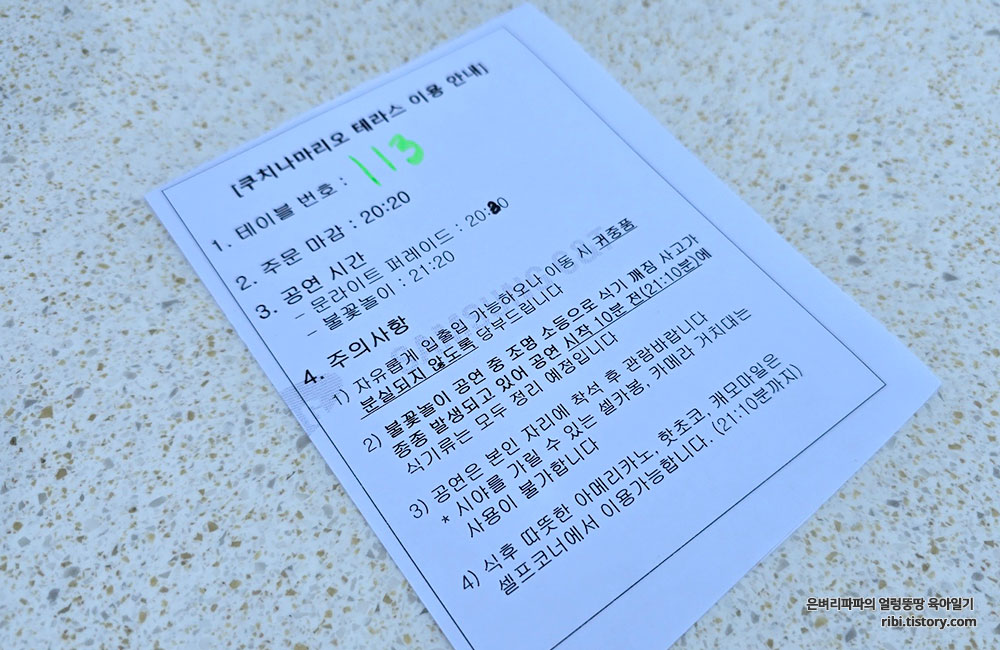 [쿠치나마리오 테라스 이용 안내]
1. 테이블 번호 : 113
2. 주문 마감 : 20:20
3. 공연 시간
- 문라이트 퍼레이드 : 20:
- 불꽃놀이 : 21:20
4. 주의사항
1) 자유롭게 입출입 가능하오나 이동 시 귀중품
분실되지 않도록 당부드립니다
2) 불꽃놀이 공연 중 조명 소등으로 식기 깨짐 사고가
종종 발생되고 있어 공연 시작 10분 전(21:10분)에
식기류는 모두 정리 예정입니다
3) 공연은 본인 자리에 착석 후 관람바랍니다
* 시야를 가릴 수 있는 셀카봉, 카메라 거치대는
사용이 불가합니다
4) 식후 따뜻한 아메리카노, 핫초코, 캐모마일은
셀프코너에서 이용가능합니다. (21:10분까지)
은벼리파파의 얼렁뚱땅 육아일기
ribi.tistory.com